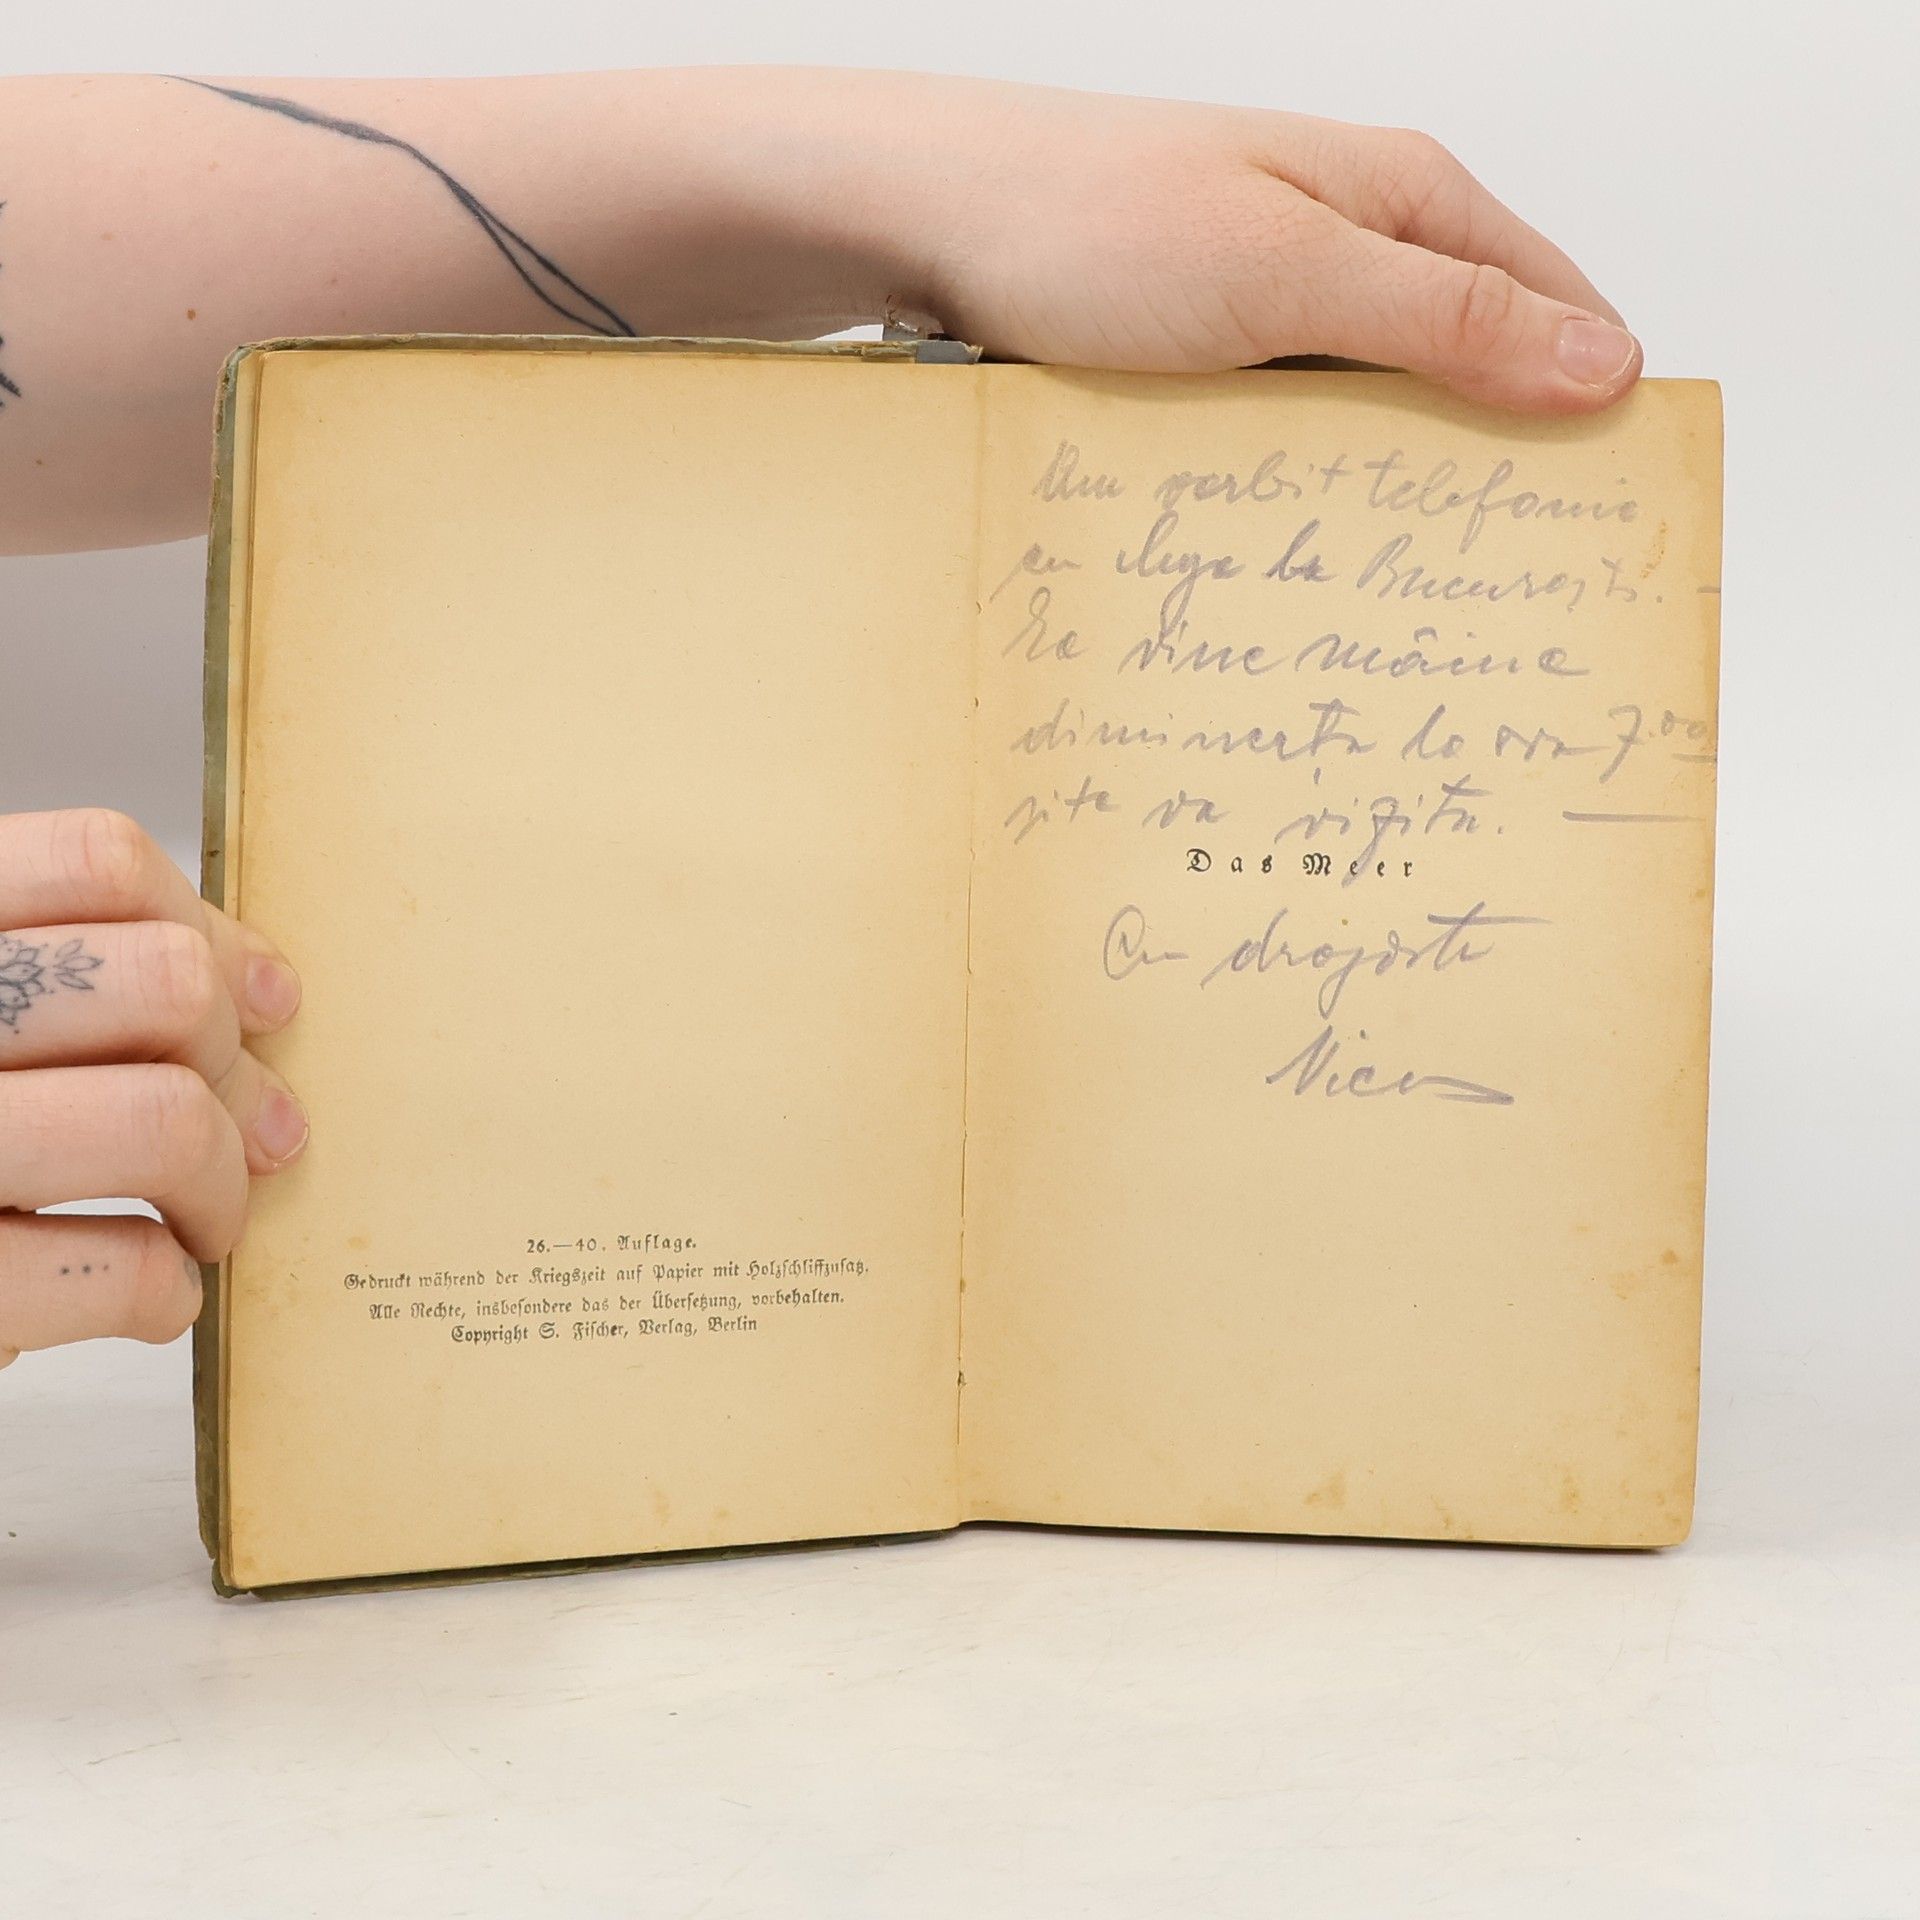 26.—40. Auflage.
Gedruckt während der Kriegszeit auf Papier mit Holzschliffzusatz.
Alle Rechte, insbesondere das der Übersetzung, vorbehalten.
Copyright S. Fischer, Verlag, Berlin
Am vorbit telefonic
cu la București. —
Ea vine mâine
dimineața la ora 7.00
și te va vizita. —
Das Meer
Cu dragoste
Nicu